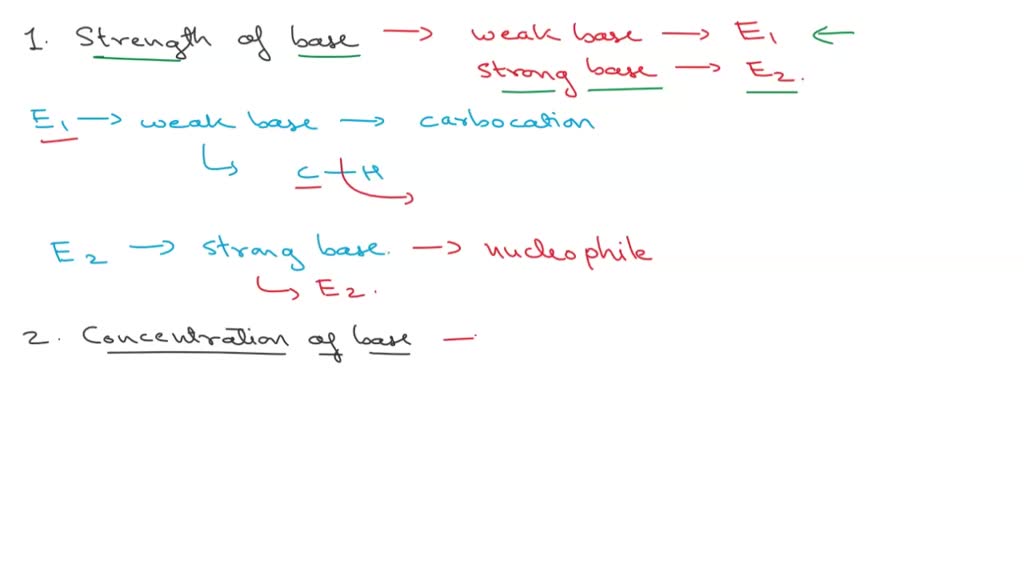 1. Strength of base → weak base → E1 ←
strong base → E2.
E1 → weak base → carbocation
↳ C-H
E2 → strong base. → nucleophile
↳ E2.
2. Concentration of base —